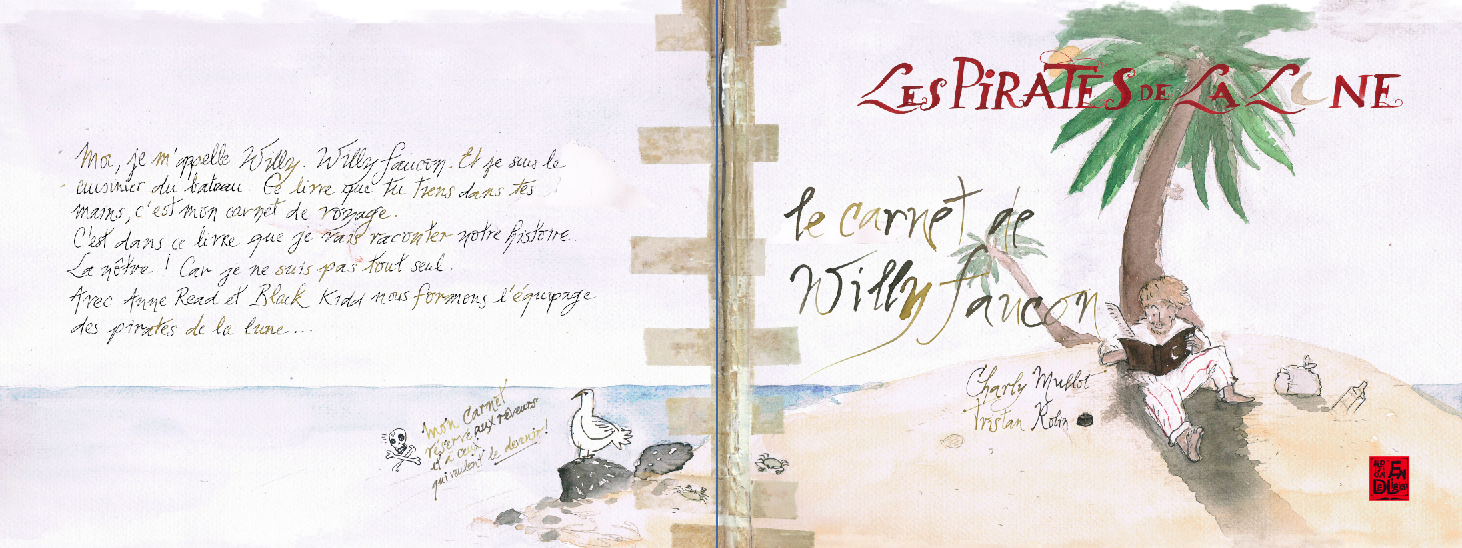 Moi, je m'appelle Willy. Willy faucon. Et je suis le
cuisinier du bateau. Ce livre que tu tiens dans tes
mains, c'est mon carnet de voyage.
C'est dans ce livre que je vais raconter notre histoire.
La nôtre ! Car je ne suis pas tout seul.
Avec Anne Read et Black Kidd nous formons l'équipage
des pirates de la lune...
mon carnet
réservé aux rêveurs
et à ceux
qui veulent le devenir!
LES PIRATES DE LA LUNE
le carnet de
Willy faucon
Charly Mullot
Tristan Robin